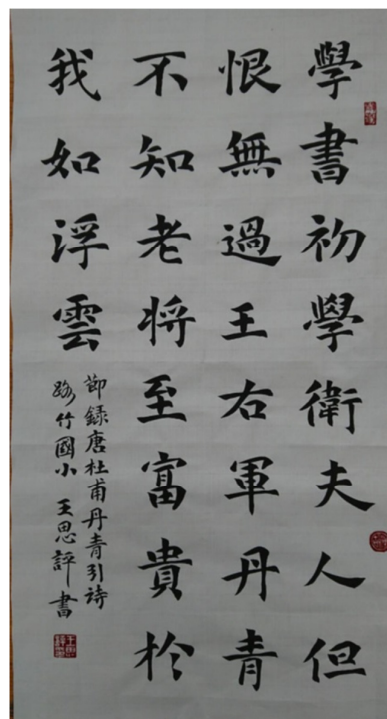 學書初學衛夫人但
恨無過王右軍丹青
不知老將至富貴於
我如浮雲
節録唐杜甫丹青引詩
路竹國小 王思評書